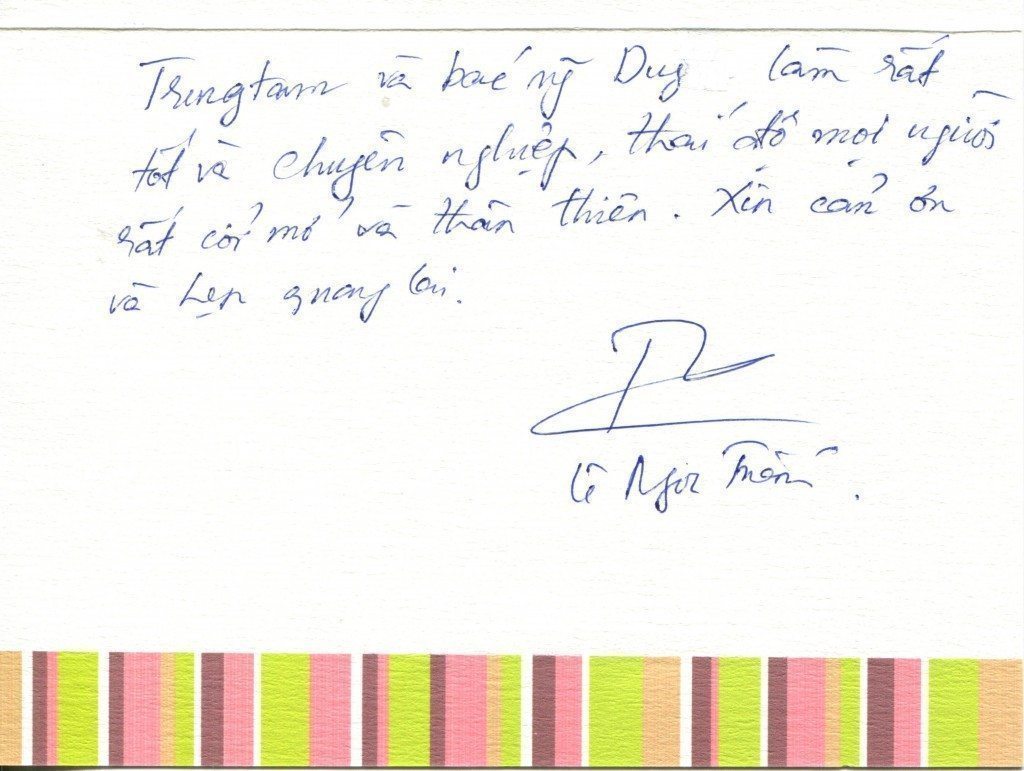 Trung tam và bác sỹ Duy làm rất
tốt và chuyên nghiệp, thái độ mọi người
rất cởi mở và thân thiên. Xin cảm ơn
và hẹn quang lai.
Lê Ngọc